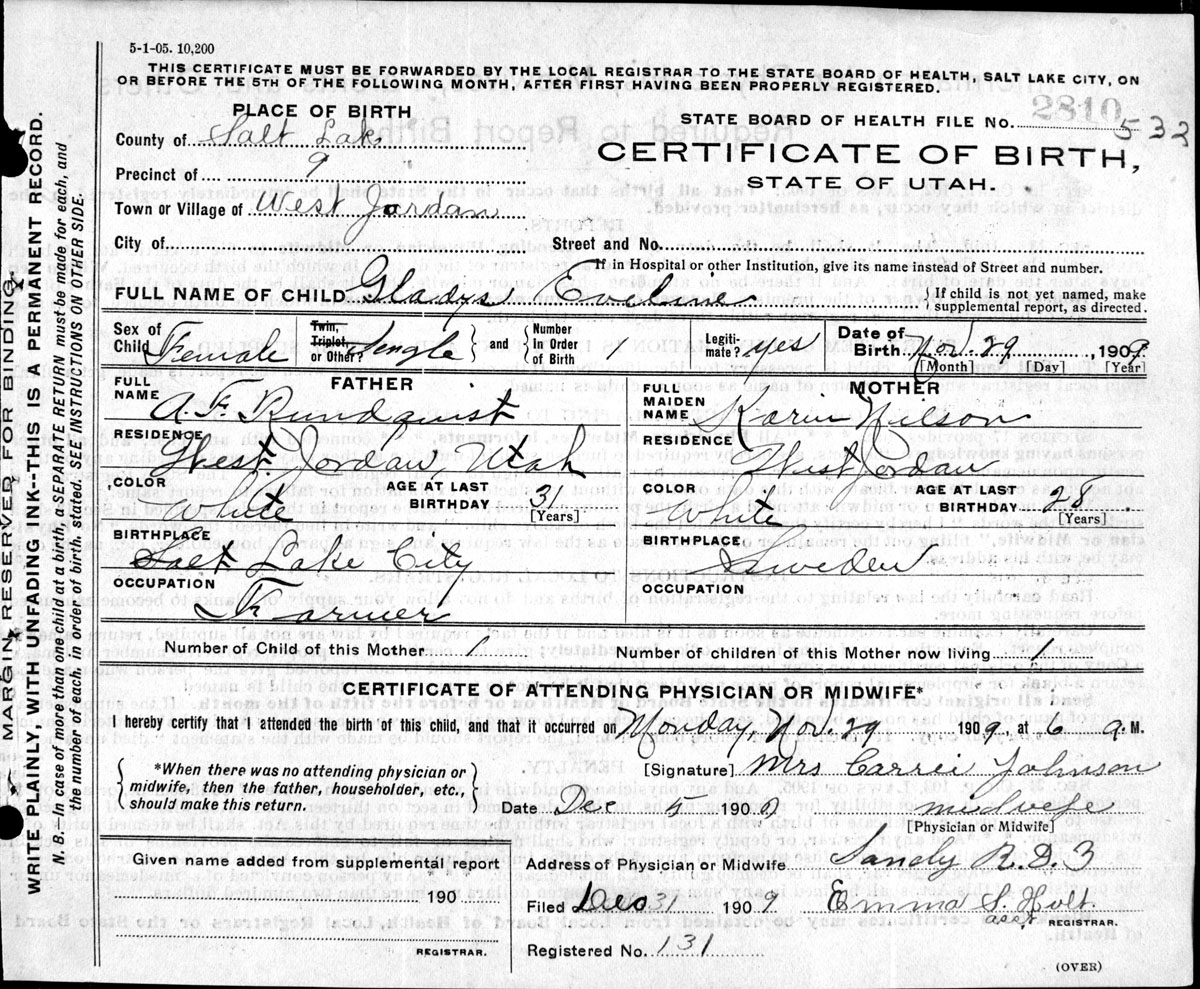 5-1-05. 10,200
THIS CERTIFICATE MUST BE FORWARDED BY THE LOCAL REGISTRAR TO THE STATE BOARD OF HEALTH, SALT LAKE CITY, ON
OR BEFORE THE 5TH OF THE FOLLOWING MONTH, AFTER FIRST HAVING BEEN PROPERLY REGISTERED.
PLACE OF BIRTH
County of Salt Lake
Precinct of 9
Town or Village of West Jordan
City of
STATE BOARD OF HEALTH FILE No. 2810
532
CERTIFICATE OF BIRTH,
STATE OF UTAH.
Street and No.
If in Hospital or other Institution, give its name instead of Street and number.
FULL NAME OF CHILD Gladys Eveline { If child is not yet named, make supplemental report, as directed.
Sex of Child Female Twin, Triplet, or Other? single } and { Number In Order of Birth 1 Legitimate? yes Date of Birth Nov. 29 1909
[Month] [Day] [Year]
FATHER
FULL NAME A. F. Rundquist
RESIDENCE West Jordan, Utah
COLOR White AGE AT LAST BIRTHDAY 31 [Years]
BIRTHPLACE Salt Lake City
OCCUPATION Farmer
MOTHER
FULL MAIDEN NAME Karin Nilson
RESIDENCE West Jordan
COLOR White AGE AT LAST BIRTHDAY 28 [Years]
BIRTHPLACE Sweden
OCCUPATION
Number of Child of this Mother 1 Number of children of this Mother now living 1
CERTIFICATE OF ATTENDING PHYSICIAN OR MIDWIFE*
I hereby certify that I attended the birth of this child, and that it occurred on Monday, Nov. 29 1909, at 6 a. M.
{ *When there was no attending physician or midwife, then the father, householder, etc., should make this return. }
[Signature] Mrs Carrei Johnson
Date Dec 5 1909 midwife
[Physician or Midwife]
Given name added from supplemental report
190
REGISTRAR.
Address of Physician or Midwife Sandy R.D. 3
Filed Dec 31 1909 Emma S. Holt
asst REGISTRAR.
Registered No. 131
(OVER)
MARGIN RESERVED FOR BINDING
WRITE PLAINLY, WITH UNFADING INK--THIS IS A PERMANENT RECORD.
N. B.—In case of more than one child at a birth, a SEPARATE RETURN must be made for each, and
the number of each, in order of birth, stated. SEE INSTRUCTIONS ON OTHER SIDE.